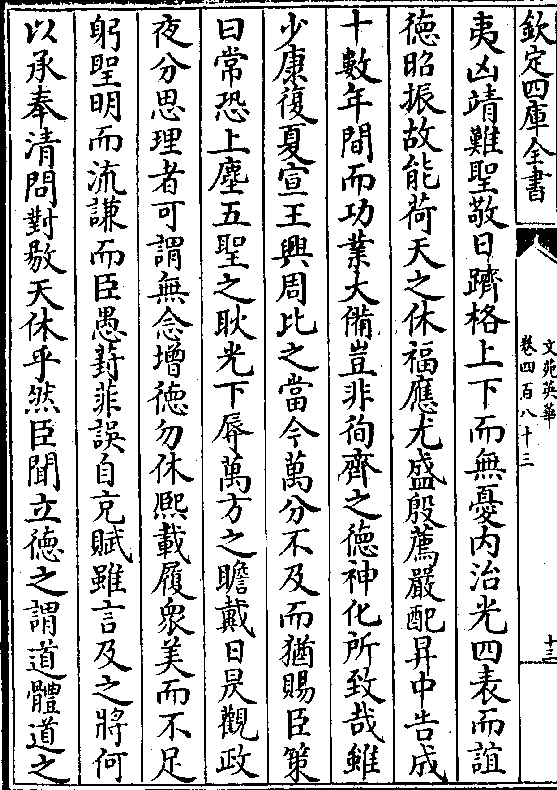 欽定四庫全書
文苑英華
卷四百八十三
十三
夷凶靖難聖敬日躋格上下而無憂内治光四表而誼
徳昭振故能荷天之休福應尤盛殷薦嚴配昇中告成
十數年間而功業大備豈非徇齊之徳神化所致哉雖
少康復夏宣王興周比之當今萬分不及而猶賜臣策
曰常恐上塵五聖之耿光下辱萬方之瞻戴日昃觀政
夜分思理者可謂無念增徳勿休熙載履衆美而不足
躬聖明而流謙而臣愚葑菲誤自充賦雖言及之將何
以承奉清問對敭天休乎然臣聞立徳之謂道體道之